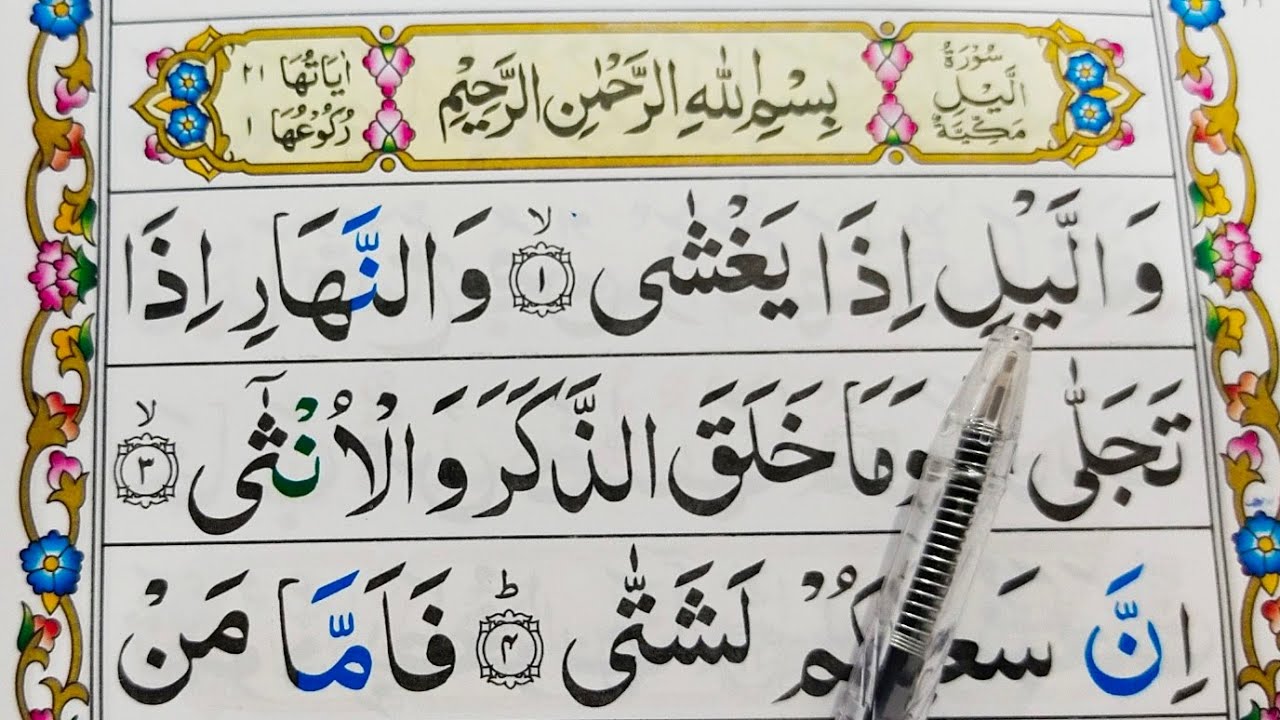 سُوْرَةُ الَّيْلِ مَكِّيَّةٌ
بِسْمِ اللّٰهِ الرَّحْمٰنِ الرَّحِيْمِ
اٰيَاتُهَا ٢١ رُكُوْعُهَا ١
وَالَّيْلِ اِذَا يَغْشٰى ۙ‏ ١ وَالنَّهَارِ اِذَا
تَجَلّٰى وَمَا خَلَقَ الذَّكَرَ وَالْاُنْثٰٓى ۙ ٣
اِنَّ سَعْيَكُمْ لَشَتّٰى ؕ ۴ فَاَمَّا مَنْ